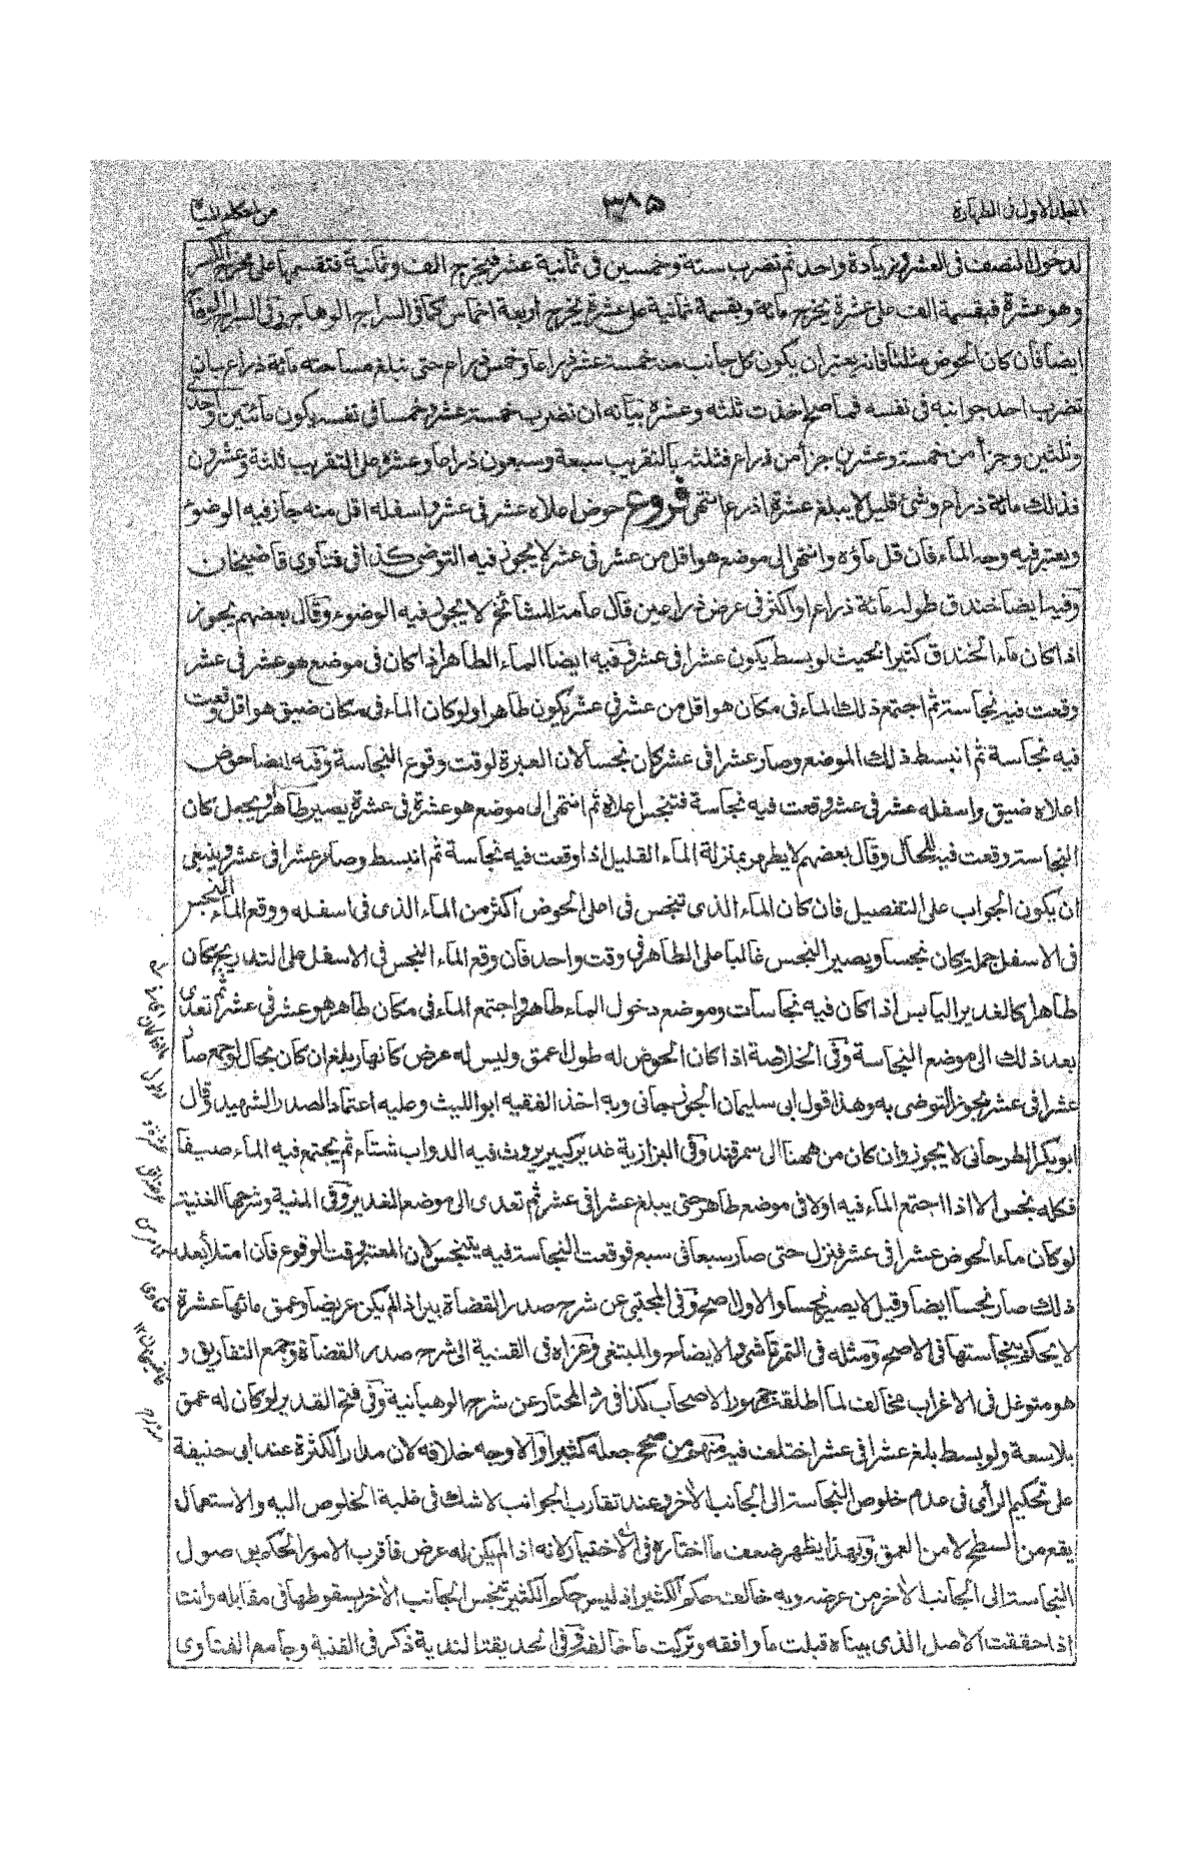 المجلد الاول فى الطهارة ٣٨٥ من احكام المياه
لدخول النصف فى العشر فى زيادة واحد ثم تضرب ستة وخمسين فى ثمانية عشر فيخرج الف وثمانية فتقسمها على مخرج الكسر
وهو عشرة فبقسمة الف على عشرة يخرج مائة وبقسمة ثمانية على عشرة يخرج اربعة اخماس كما فى السراج الوهاج وفى السراج الوهاج
ايضا فان كان الحوض مثلثا فانه يعتبر ان يكون كل جانب منه خمسة عشر ذراعا وخمس ذراع حتى تبلغ مساحته مائة ذراع بان
تضرب احد جوانبه فى نفسه فما صح اخذت ثلثه وعشره بيانه ان تضرب خمسة عشر وخمسا فى نفسه يكون مائتين واحد
وثلثين وجزأ من خمسة وعشرين جزأ من ذراع فثلثه بالتقريب سبعة وسبعون ذراعا وعشره على التقريب ثلثة وعشرون
فذالك مائة ذراع وشئ قليل لا يبلغ عشرة اذرع انتهى فروع حوض اعلاه عشر فى عشر واسفله اقل منه جاز فيه الوضوء
ويعتبر فيه وجه الماء فان قل ماؤه وانتهى الى موضع هو اقل من عشر فى عشر لا يجوز فيه التوضى كذا فى فتاوى قاضيخان
وفيه ايضا خندق طوله مائة ذراع او اكثر فى عرض ذراعين قال عامة المشائخ لا يجوز فيه الوضوء وقال بعضهم يجوز
اذا كان ماء الخندق كثيرا بحيث لو بسط يكون عشرا فى عشر وفيه ايضا الماء الطاهر اذا كان فى موضع هو عشر فى عشر
وقعت فيه نجاسة ثم اجتمع ذلك الماء فى مكان هو اقل من عشر فى عشر يكون طاهرا ولو كان الماء فى مكان ضيق هو اقل وقعت
فيه نجاسة ثم انبسط ذلك الموضع وصار عشرا فى عشر كان نجسا لان العبرة لوقت وقوع النجاسة وفيه ايضا حوض
اعلاه ضيق واسفله عشر فى عشر وقعت فيه نجاسة فتنجس اعلاه ثم انتهى الى موضع هو عشرة فى عشرة يصير طاهرا ويجعل كان
النجاسة وقعت فيه للحال وقال بعضهم لا يطهر بمنزلة الماء القليل اذا وقعت فيه نجاسة ثم انبسط وصار عشرا فى عشر وينبغى
ان يكون الجواب على التفصيل فان كان الماء الذى تنجس فى اعلى الحوض اكثر من الماء الذى فى اسفله ووقع الماء النجس
فى الاسفل جملة كان نجسا ويصير النجس غالبا على الطاهر فى وقت واحد فان وقع الماء النجس فى الاسفل على التدريج كان
طاهرا كالغدير اليابس اذا كان فيه نجاسات وموضع دخول الماء طاهر واجتمع الماء فى مكان طاهر هو عشر فى عشر ثم تعدى
بعد ذلك الى موضع النجاسة وفى الخلاصة اذا كان الحوض له طول وعمق وليس له عرض كانهار بلغ ان كان بحال لو جمع صار
عشرا فى عشر يجوز التوضى به وهذا قول ابى سليمان الجوزجانى وبه اخذ الفقيه ابو الليث وعليه اعتماد الصدر الشهيد وقال
ابو بكر الطرحانى لا يجوز وان كان من ههنا الى سمرقند وفى البزازية غدير كبير يروث فيه الدواب شتاء ثم يجتمع فيه الماء صيفا
فكله نجس الا اذا اجتمع الماء فيه اولا فى موضع طاهر حتى يبلغ عشرا فى عشر ثم تعدى الى موضع الغدير وفى المنية وشرحها الغنية
لو كان ماء الحوض عشرا فى عشر فنزل حتى صار سبعا فى سبع فوقعت النجاسة فيه يتنجس لان المعتبر وقت الوقوع فان امتلأ بعد
ذلك صار نجسا ايضا وقيل لا يصير نجسا والاول اصح وفى المجتبى عن شرح صدر القضاة بير اذا لم يكن عريضا وعمق مائها عشرة
لا يحكم بنجاستها فى الاصح ومثله فى التمرتاشى والايضاح والمبتغى وعزاه فى القنية الى شرح صدر القضاة وجمع التفاريق و
هو متوغل فى الاغراب مخالف لما اطلقه جمهور الاصحاب كذا فى رد المحتار عن شرح الوهبانية وفى فتح القدير لو كان له عمق
بلا سعة ولو بسط بلغ عشرا فى عشر اختلف فيه منهم من صحح جعله كثيرا والاوجه خلافه لان مدار الكثرة عند ابى حنيفة
على تحكيم الرأى فى عدم خلوص النجاسة الى الجانب الآخر وعند تقارب الجوانب لا شك فى غلبة الخلوص اليه والاستعمال
يقع من السطح لا من العمق وبهذا يظهر ضعف ما اختاره فى الاختيار لانه اذا لم يكن له عرض فاقرب الامور الحكم بوصول
النجاسة الى الجانب الآخر من عرضه وبه خالف حكم الكثير اذ ليس حكم الكثير تنجس الجانب الآخر بسقوطها فى مقابله وانت
اذا حققت الاصل الذى بيناه قبلت ما وافقه وتركت ما خالفه وفى الحديقة الندية ذكر فى القنية وجامع الفتاوى